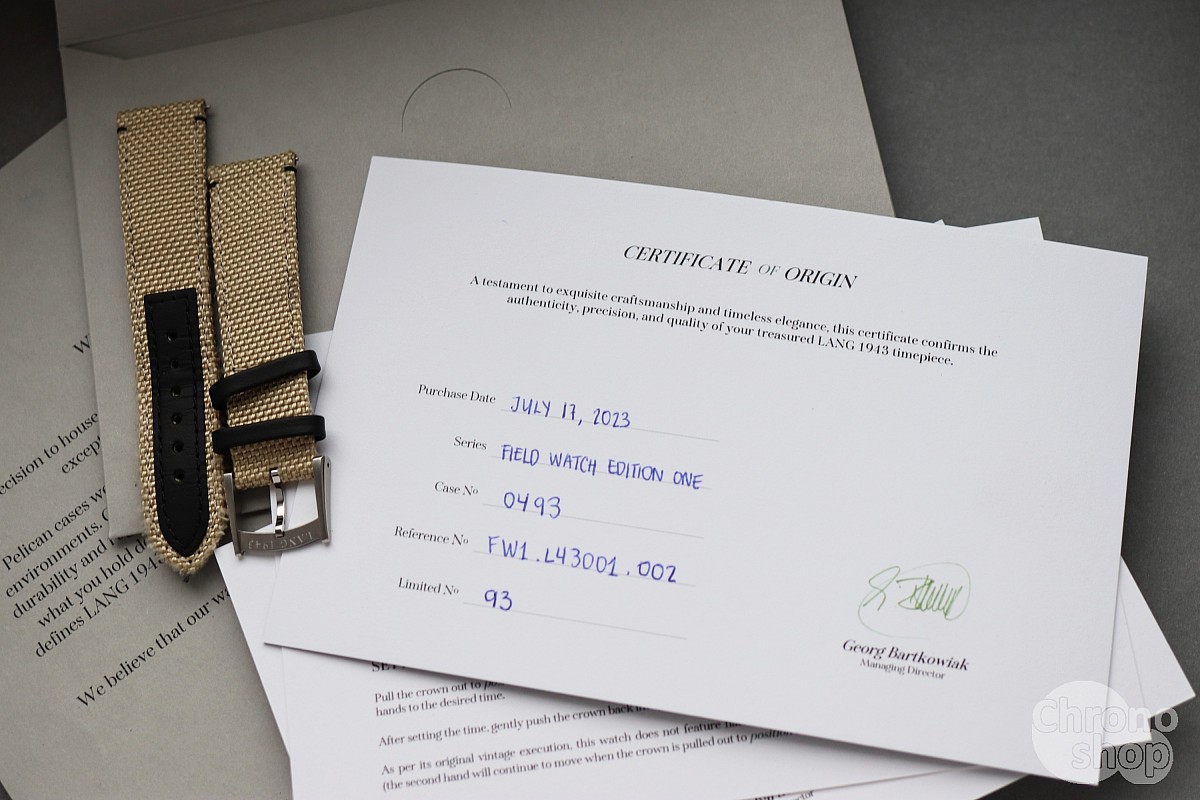 CERTIFICATE OF ORIGIN
A testament to exquisite craftsmanship and timeless elegance, this certificate confirms the
authenticity, precision, and quality of your treasured LANG 1943 timepiece.
Purchase Date JULY 17, 2023
Series FIELD WATCH EDITION ONE
Case Nº 0493
Reference Nº FW1.L43001.002
Limited Nº 93
Georg Bartkowiak
Managing Director
LANG 1943
Pelican cases
environments.
durability and
what you hold
defines LANG 1943
We believe that our
Pull the crown out to
hands to the desired time.
After setting the time, gently push the crown back
As per its original vintage execution, this watch does not feature
(the second hand will continue to move when the crown is pulled out to position
Director
Chrono
shop